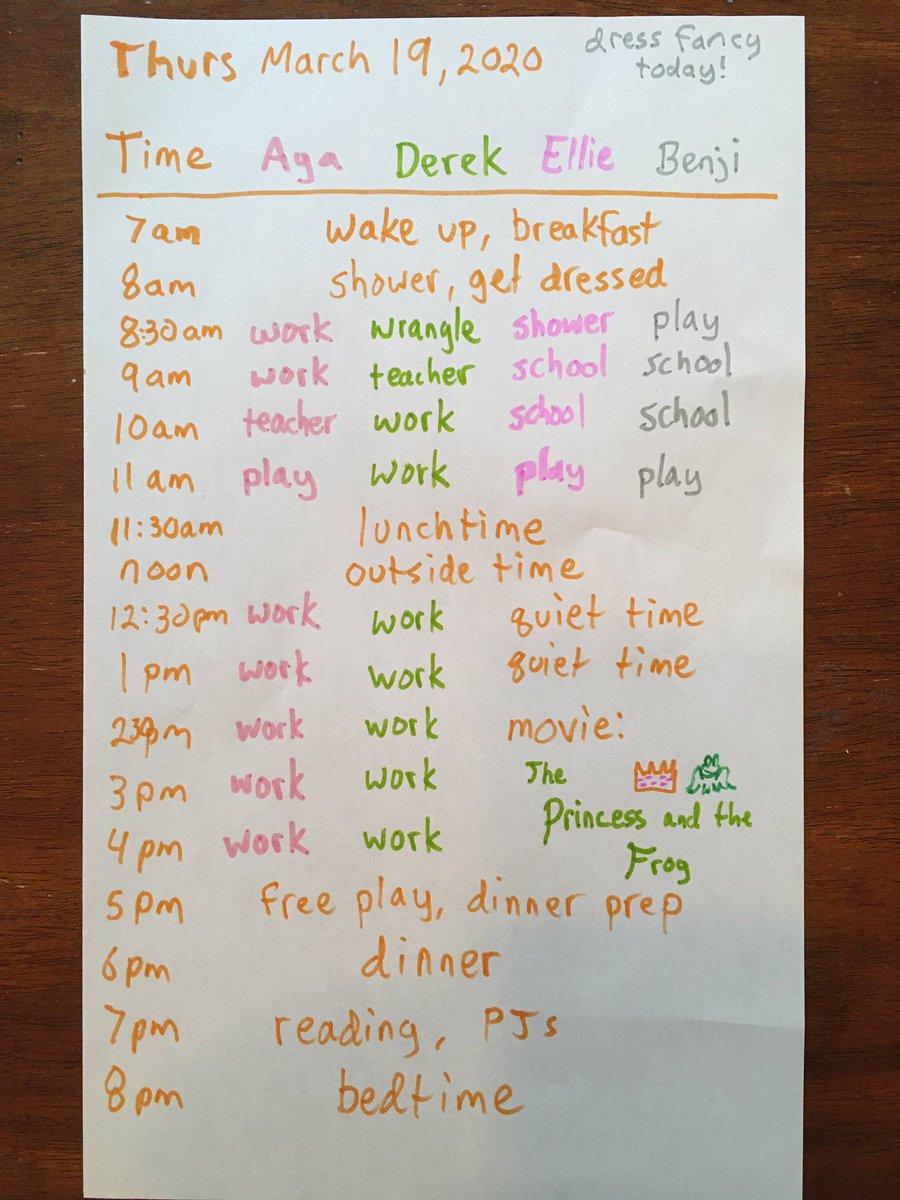 Thurs March 19, 2020 dress fancy
today!
Time Aga Derek Ellie Benji
7am wake up, breakfast
8am shower, get dressed
8:30am work wrangle shower play
9am work teacher school school
10am teacher work school school
11am play work play play
11:30am lunchtime
noon outside time
12:30pm work work quiet time
1pm work work quiet time
work work movie:
3pm work work The
Princess and the
4pm work work Frog
5pm free play, dinner prep
6pm dinner
7pm reading, PJs
8pm bedtime